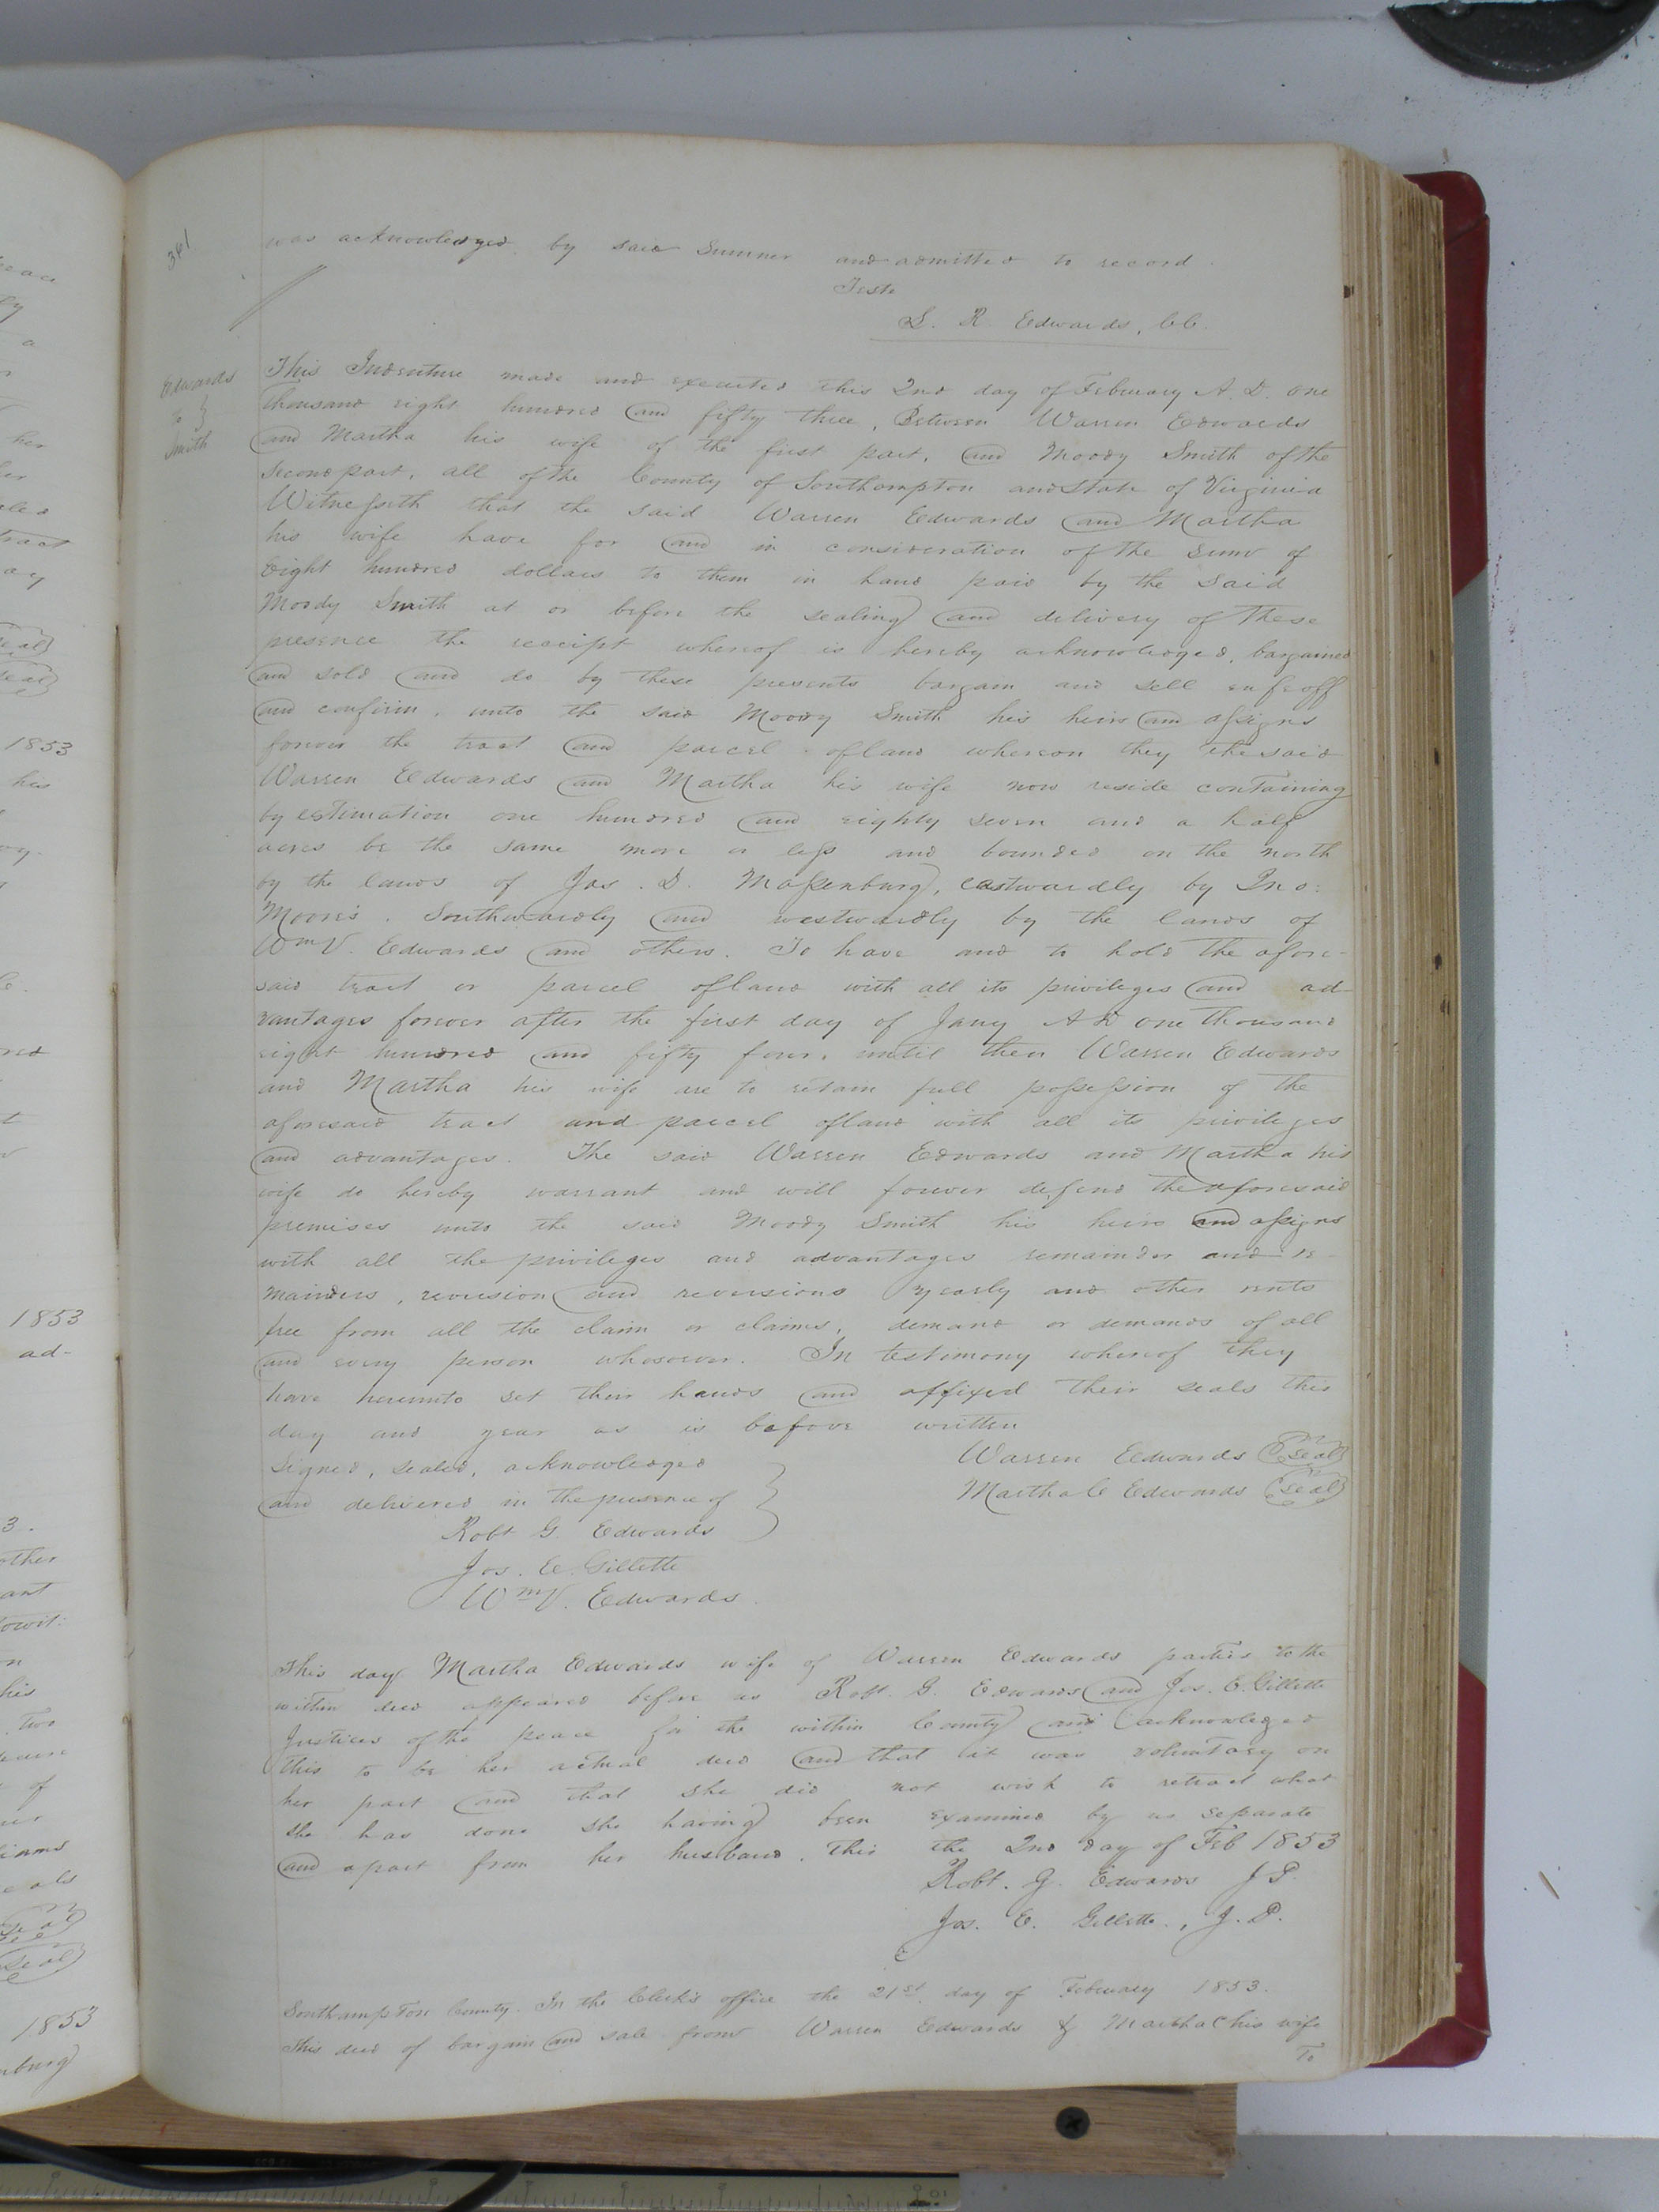 361
was acknowledged by said Sumner and admitted to record
Teste
L. R Edwards, CC.
Edwards
to }
Smith
This Indenture made and executed this 2nd day of February A. D. one
thousand eight hundred and fifty three, Between Warren Edwards
and Martha his wife of the first part, and Moody Smith of the
second part, all of the County of Southampton and State of Virginia
Witnesseth that the said Warren Edwards and Martha
his wife have for and in consideration of the sum of
Eight hundred dollars to them in hand paid by the said
Moody Smith at or before the sealing and delivery of these
presence the receipt whereof is hereby acknowledged, bargained
and sold and do by these presents bargain and sell enfeoff
and confirm, unto the said Moody Smith his heirs and assigns
forever the tract and parcel of land whereon they the said
Warren Edwards and Martha his wife now reside containing
by estimation one hundred and eighty seven and a half
acres be the same more or less and bounded on the north
by the lands of Jas. D. Massenburg, eastwardly by Jno:
Moore's. Southwardly and westwardly by the lands of
Wm V. Edwards and others. To have and to hold the afore-
said tract or parcel of land with all its privileges and ad-
vantages forever after the first day of Jany A D one thousand
eight hundred and fifty four, until then Warren Edwards
and Martha his wife are to retain full possession of the
aforesaid tract and parcel of land with all its privileges
and advantages. The said Warren Edwards and Martha his
wife do hereby warrant and will forever defend the aforesaid
premises unto the said Moody Smith his heirs and assigns
with all the privileges and advantages remainder and re-
mainders, revision and reversions yearly and other rents
free from all the claim or claims, demand or demands of all
and every person whosoever. In testimony whereof they
have hereunto set their hands and affixed their seals this
day and year as is before written
Signed, sealed, acknowledged
and delivered in the presence of
Warren Edwards (seal)
Martha C Edwards (seal)
Robt G. Edwards
Jos. E. Gillette
Wm V. Edwards
This day Martha Edwards wife of Warren Edwards parties to the
within deed appeared before us Robt. G. Edwards and Jos. E. Gillette
Justices of the peace for the within County and acknowledged
this to be her actual deed and that it was voluntary on
her part and that she did not wish to retract what
she has done she having been examined by us separate
and apart from her husband. This the 2nd day of Feb 1853
Robt. G. Edwards J P.
Jos. E. Gillette, J. P.
Southampton County. In the Clerk's office the 21st day of February 1853.
This deed of bargain and sale from Warren Edwards & Martha C his wife
To